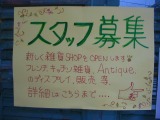 スタッフ募集
新しく雑貨SHOPをOPENします
フレンチ、キッチン雑貨、Antique、
のディスプレイ、販売等
詳細はこちらまで....